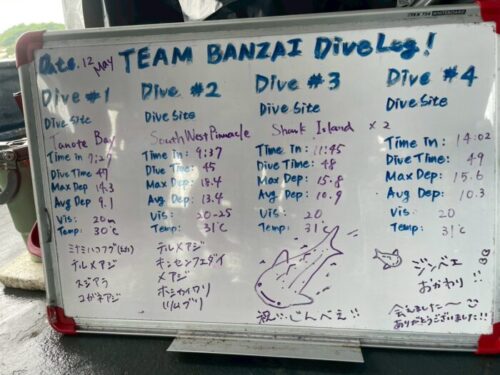 Date. 12 May TEAM BANZAI Dive Log!
Dive #1
Dive Site
Tanote Bay
Time In: 7:27
Dive Time: 47
Max Dep: 14.3
Avg Dep: 9.1
Vis: 20m
Temp: 30℃
ミナミハコフグ(幼)
テルメアジ
スジアラ
コガネアジ
Dive #2
Dive Site
South West Pinnacle
Time In: 9:37
Dive Time: 45
Max Dep: 18.4
Avg Dep: 13.4
Vis: 20-25
Temp: 31℃
テルメアジ
キンセンフエダイ
メアジ
ホシカイワリ
ツムブリ
Dive #3
Dive Site
Shark Island ×2
Time In: 11:45
Dive Time: 48
Max Dep: 15.8
Avg Dep: 10.9
Vis: 20
Temp: 31℃
祝!!じんべえ!!
Dive #4
Dive Site
Time In: 14:02
Dive Time: 49
Max Dep: 15.6
Avg Dep: 10.3
Vis: 20
Temp: 31℃
ジンベエ
おかわり!!
会えました〜
ありがとうございました!!